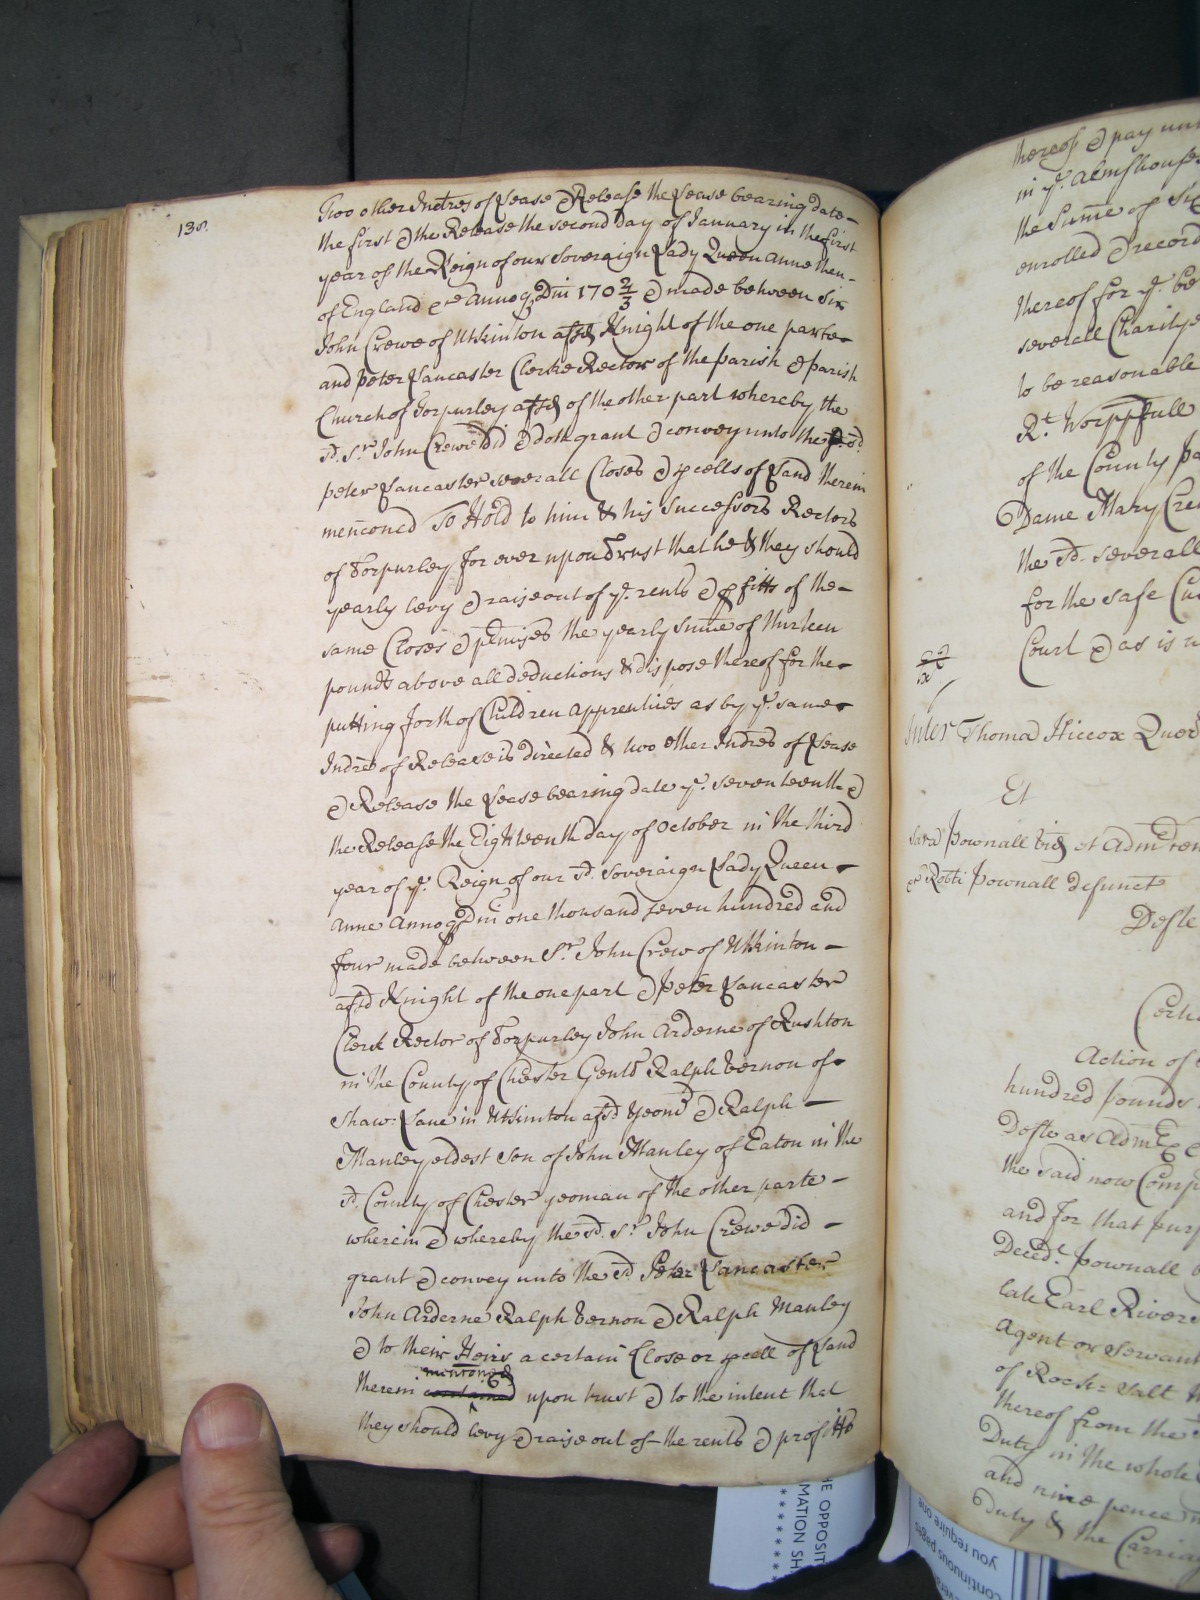 138.
Two other Indres of Lease & Release the Lease bearing date
the first & the Release the second day of January in the first
year of the Reign of our Soveraign Lady Queen Anne then
of England &ce Annoq Dni 170 2/3 & made between Sir
John Crewe of Utkinton afsd Knight of the one parte
and Peter Lancaster Clerke Rector of the parish & parish
Church of Torpurley afsd of the other part whereby the
sd. Sr. John Crewe did & doth grant & convey unto the sd.
Peter Lancaster severall Closes & pcells of Land therein
menconed To Hold to him & his Successors Rectors
of Torpurley for ever upon Trust that he & they should
yearly levy & raise out of ye. rents & pfitts of the
same Closes & pmises the yearly sume of thirteen
pounds above all deductions & dispose thereof for the
putting forth of Children apprentices as by ye. same
Indres of Release is directed & two other Indres of Lease
& Release the Lease bearing date ye. seventeenth &
the Release the Eighteenth day of October in the third
year of ye. Reign of our sd. soveraign Lady Queen
Anne Annoq Dni one thousand seven hundred and
four made between Sr. John Crew of Utkinton
afsd Knight of the one part & Peter Lancaster
Clerk Rector of Torpurley John Arderne of Rushton
in the County of Chester Gent Ralph Vernon of
Shaw: Lane in Utkinton afsd yeom & Ralph
Manley eldest Son of John Manley of Eaton in the
sd. County of Chester yeoman of the other parte
wherein & whereby the sd. Sr. John Crewe did
grant & convey unto the sd Peter Lancaster
John Arderne Ralph Vernon & Ralph Manley
& to their Heirs a certain Close or pcell of Land
menconed
therein contained upon trust & to the intent that
they should levy & raise out of the rents & profitts
thereof & pay
in ye. Almshouse
the Sume of
enrolled & record
thereof for ye. be
severall Charitye
to be reasonable
Rt. Worppfull
of the County pa
Dame Mary Cre
the sd. severall
for the safe Cu
Court & as is
Inter Thoma Hiccox Quer
Et
Sara Pownall vid et Adm
Robti Pownall defunct
Defte
Action of
hundred pounds
Defte as Adm
the said now Comp
and for that purp
Decedt. Pownall
late Earl Rivers
Agent or Servant
of Rock: Salt
thereof from the
Duty in the whole
and nine pence
Duty & the Carria
OPPOSIT
MATION SH
* * * * * * *
you require one
continuous pages